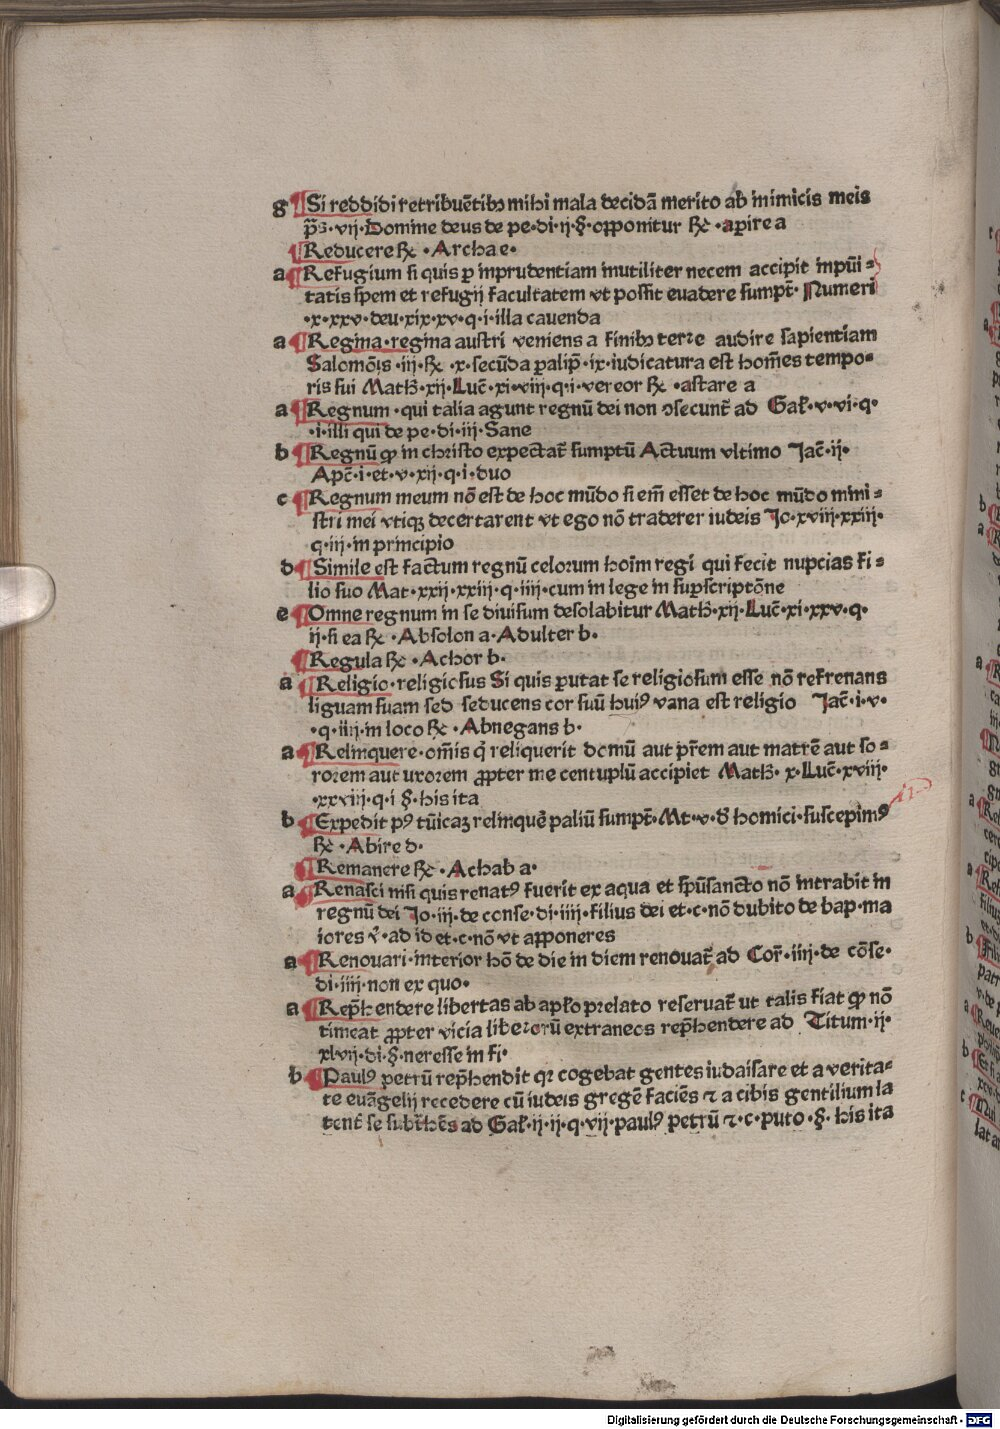 g ¶Si reddidi retribuētibꝫ mihi mala decidā merito ab inimicis meis
p̄s·vij·Domine deus de pe·di·ij·§·opponitur Rͨ ·aperire a
¶Reducere Rͨ ·Archa e·
a ¶Refugium si quis ꝑ inprudentiam inutiliter necem accipit inpūi⸗
tatis spem et refugij facultatem vt possit euadere sumpt̄· Numeri
·x·xxv·deu·xix·xv·q·i·illa cauenda
a ¶Regina·regina austri veniens a finibꝫ terre audire sapientiam
Salomōis ·iij·Rͨ ·x·secūda ꝑalip̄·ix·iudicatura est hom̄es tempo⸗
ris sui Math̄·xij·Luc̄·xi·viij·q·i·vereor Rͨ ·astare a
a ¶Regnum·qui talia agunt regnū dei non ꝯsecunt̄ ad Gal̄·v·vi·q·
·i·illi qui de pe·di·iij·Sane
b ¶Regnū ꝙ in christo expectat̄ sumptū Actuum vltimo Jac̄·ij·
Apc̄·i·et·v·xij·q·i·duo
c ¶Regnum meum nō est de hoc mūdo si em̄ esset de hoc mūdo mini⸗
stri mei vtiqꝫ decertarent vt ego nō traderer iudeis Jo·xviij·xxiij·
q·iij·in principio
d ¶Simile est factum regnū celorum hoīm regi qui fecit nupcias fi⸗
lio suo Mat·xxij·xxiij·q·iiij·cum in lege in suꝑscriptōne
e ¶Omne regnum in se diuisum desolabitur Math̄·xij·Luc̄·xi·xxv·q·
ij·si ea Rͨ ·Absolon a·Adulter b·
¶Regula Rͨ ·Achor b·
a ¶Religio·religiosus Si quis putat se religiosum esse nō refrenans
liguam suam sed seducens cor suū huiꝰ vana est religio Jac̄·i·v·
·q·iiij·in loco Rͨ ·Abnegans b·
a ¶Relinquere·om̄is q̄ reliquerit domū aut p̄rem aut matrē aut so⸗
rorem aut uxorem ꝓpter me centuplū accipiet Math̄·x·Luc̄·xviij·
·xxviij·q·i §·his ita
b ¶Expedit pꝰ tūicaꝫ relinquē paliū sumpt̄·Mt·v·d̄ homici·suscepimꝰ
Rͨ ·Abire d·
¶Remanere Rͨ ·Achab a·
a ¶Renasci nisi quis renatꝰ fuerit ex aqua et sp̄usancto nō intrabit in
regnū dei Jo·iij·de conse·di·iiij·filius dei et·c·nō dubito de bap·ma
iores v̄·ad id et·c·nō vt apponeres
a ¶Renouari·interior hō de die in diem renouat̄ ad Cor̄·iiij·de cōse·
di·iiij·non ex quo·
a ¶Rep̄hendere libertas ab apl̄o prelato reseruat̄ ut talis fiat ꝙ nō
timeat ꝓpter vicia liberorū extraneos rep̄hendere ad Titum·ij·
xlvij·di·§·neresse in fi·
b ¶Paulꝰ petrū rep̄hendit qꝛ cogebat gentes iudaisare et a verita⸗
te euāgelij recedere cū iudeis gregē faciēs ⁊ a cibis gentilium la
tent̄ se subt̄hēs ad Gal̄·ij·ij·q·vij·paulꝰ petrū ⁊·c·puto·§·his ita
Digitalisierung gefördert durch die Deutsche Forschungsgemeinschaft - DFG